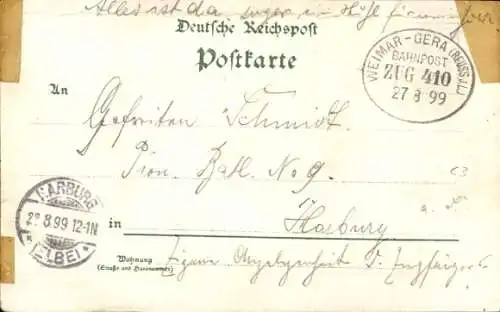 Alles ist da
Deutsche Reichspost
Postkarte
WEIMAR-GERA (REUSS j.L.)
BAHNPOST
ZUG 410
27 8 99
An
Gefreiten Schmidt.
Pion. Batl. No 9.
HARBURG
8.99 12-1N
(ELBE)
in
Harburg
Wohnung
(Straße und Hausnummer)
Eigene Angelegenheit d.